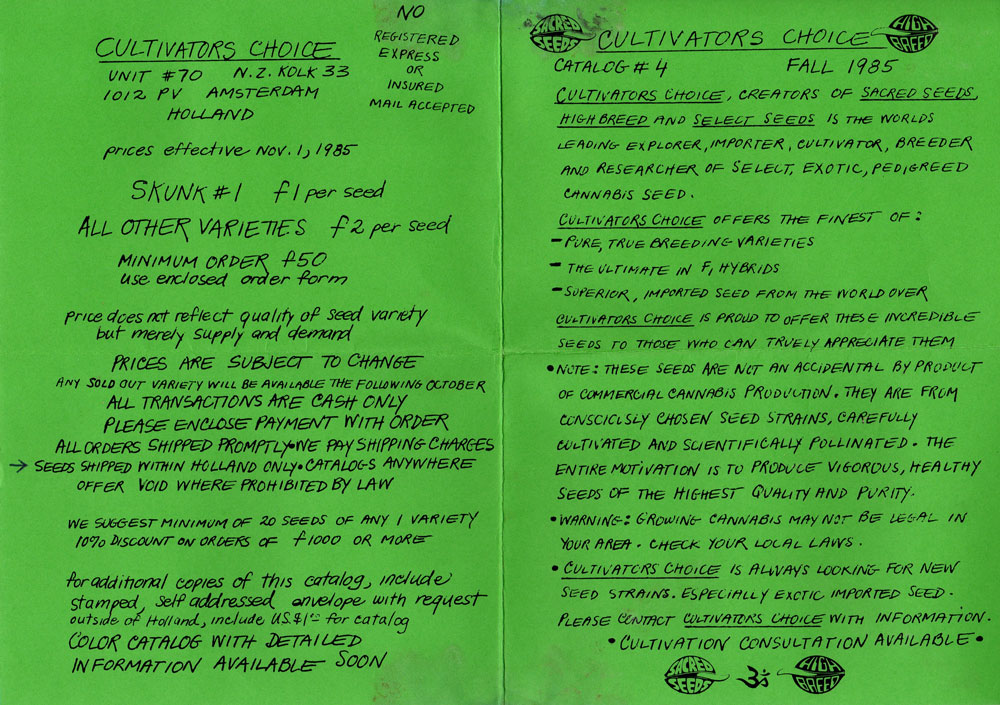 CULTIVATORS CHOICE
UNIT #70 N.Z. KOLK 33
1012 PV AMSTERDAM
HOLLAND
NO
REGISTERED
EXPRESS
OR
INSURED
MAIL ACCEPTED
prices effective NOV. 1, 1985
SKUNK #1 f1 per seed
ALL OTHER VARIETIES f2 per seed
MINIMUM ORDER f50
use enclosed order form
price does not reflect quality of seed variety
but merely supply and demand
PRICES ARE SUBJECT TO CHANGE
ANY SOLD OUT VARIETY WILL BE AVAILABLE THE FOLLOWING OCTOBER
ALL TRANSACTIONS ARE CASH ONLY
PLEASE ENCLOSE PAYMENT WITH ORDER
ALL ORDERS SHIPPED PROMPTLY • WE PAY SHIPPING CHARGES
→ SEEDS SHIPPED WITHIN HOLLAND ONLY • CATALOGS ANYWHERE
OFFER VOID WHERE PROHIBITED BY LAW
WE SUGGEST MINIMUM OF 20 SEEDS OF ANY 1 VARIETY
10% DISCOUNT ON ORDERS OF f1000 OR MORE
for additional copies of this catalog, include
stamped, self addressed envelope with request
outside of Holland, include U.S. $1.00 for catalog
COLOR CATALOG WITH DETAILED
INFORMATION AVAILABLE SOON
SACRED SEEDS CULTIVATORS CHOICE HIGH BREED
CATALOG #4 FALL 1985
CULTIVATORS CHOICE, CREATORS OF SACRED SEEDS,
HIGH BREED AND SELECT SEEDS IS THE WORLDS
LEADING EXPLORER, IMPORTER, CULTIVATOR, BREEDER
AND RESEARCHER OF SELECT, EXOTIC, PEDIGREED
CANNABIS SEED.
CULTIVATORS CHOICE OFFERS THE FINEST OF:
- PURE, TRUE BREEDING VARIETIES
- THE ULTIMATE IN F1 HYBRIDS
- SUPERIOR, IMPORTED SEED FROM THE WORLD OVER
CULTIVATORS CHOICE IS PROUD TO OFFER THESE INCREDIBLE
SEEDS TO THOSE WHO CAN TRUELY APPRECIATE THEM
• NOTE: THESE SEEDS ARE NOT AN ACCIDENTAL BY PRODUCT
OF COMMERCIAL CANNABIS PRODUCTION. THEY ARE FROM
CONSCIOLSLY CHOSEN SEED STRAINS, CAREFULLY
CULTIVATED AND SCIENTIFICALLY POLLINATED. THE
ENTIRE MOTIVATION IS TO PRODUCE VIGOROUS, HEALTHY
SEEDS OF THE HIGHEST QUALITY AND PURITY.
• WARNING: GROWING CANNABIS MAY NOT BE LEGAL IN
YOUR AREA. CHECK YOUR LOCAL LAWS.
• CULTIVATORS CHOICE IS ALWAYS LOOKING FOR NEW
SEED STRAINS. ESPECIALLY EXOTIC IMPORTED SEED.
PLEASE CONTACT CULTIVATORS CHOICE WITH INFORMATION.
• CULTIVATION CONSULTATION AVAILABLE •
SACRED SEEDS ॐ HIGH BREED